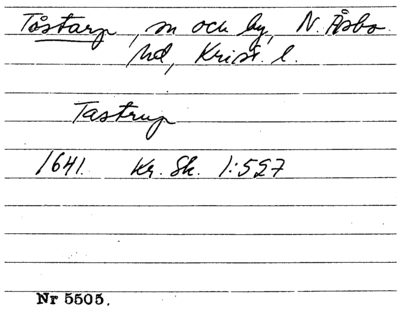 Tåstarp, sn och by, N. Åsbo
hd, Krist. l.
Tastrup
1641. Kr. Sk. 1:527
Nr 5505.